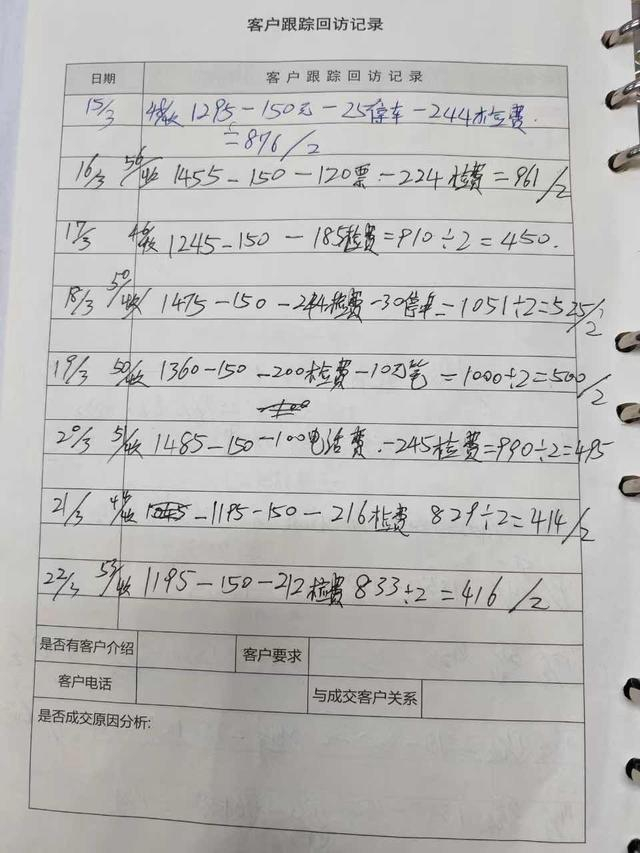 客户跟踪回访记录
日期 客户跟踪回访记录
15/3 48/收 1295-150元-25停车-244检费.
÷=876/2
16/3 56/收 1455-150-120票-224检费=961/2
17/3 收 1245-150-185检费=910÷2=450.
18/3 50/收 1475-150-244检费-30停车=1051÷2=525/2
19/3 50/收 1360-150-200检费-10元笔=1000÷2=500/2
20/3 51/收 1485-150-100电话费.-245检费=990÷2=495
21/3 收 -1195-150-216检费 829÷2=414/2
22/3 53/收 1195-150-212检费 833÷2=416/2
是否有客户介绍 客户要求
客户电话 与成交客户关系
是否成交原因分析: